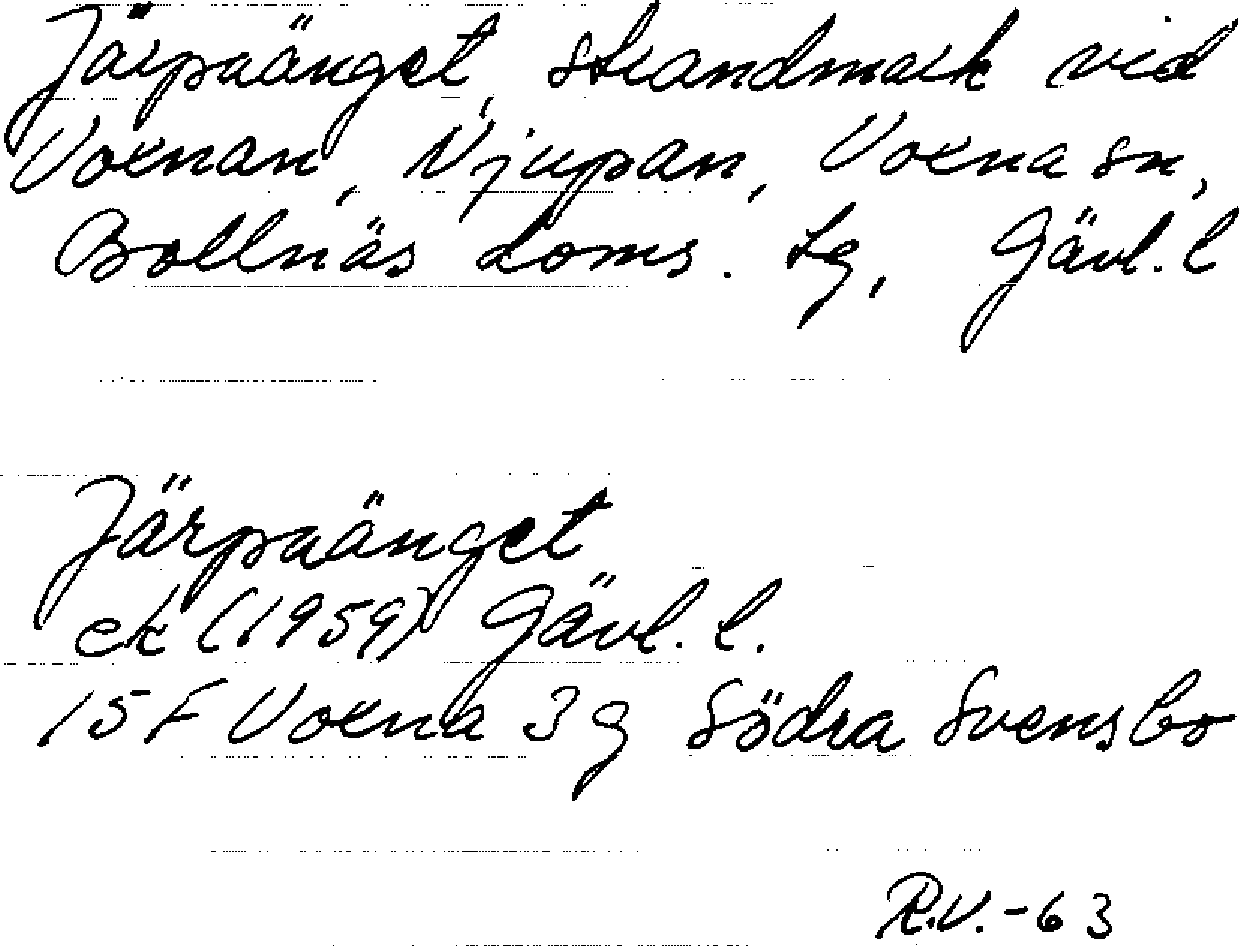 Järpaänget, strandmark vid
Voxnan, Njupan, Voxna sn,
Bollnäs doms. tg, Gävl. l
Järpaänget
ek (1959) Gävl. l.
15F Voxna 3g Södra Svensbo
R.V.-63